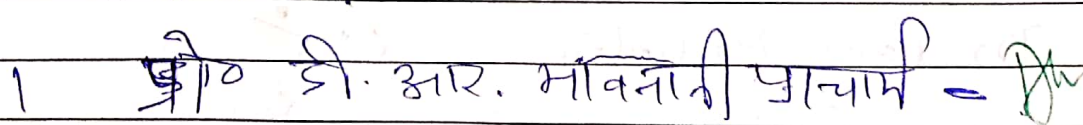 1 प्रो० डी. आर. मावलानी प्राचार्य =